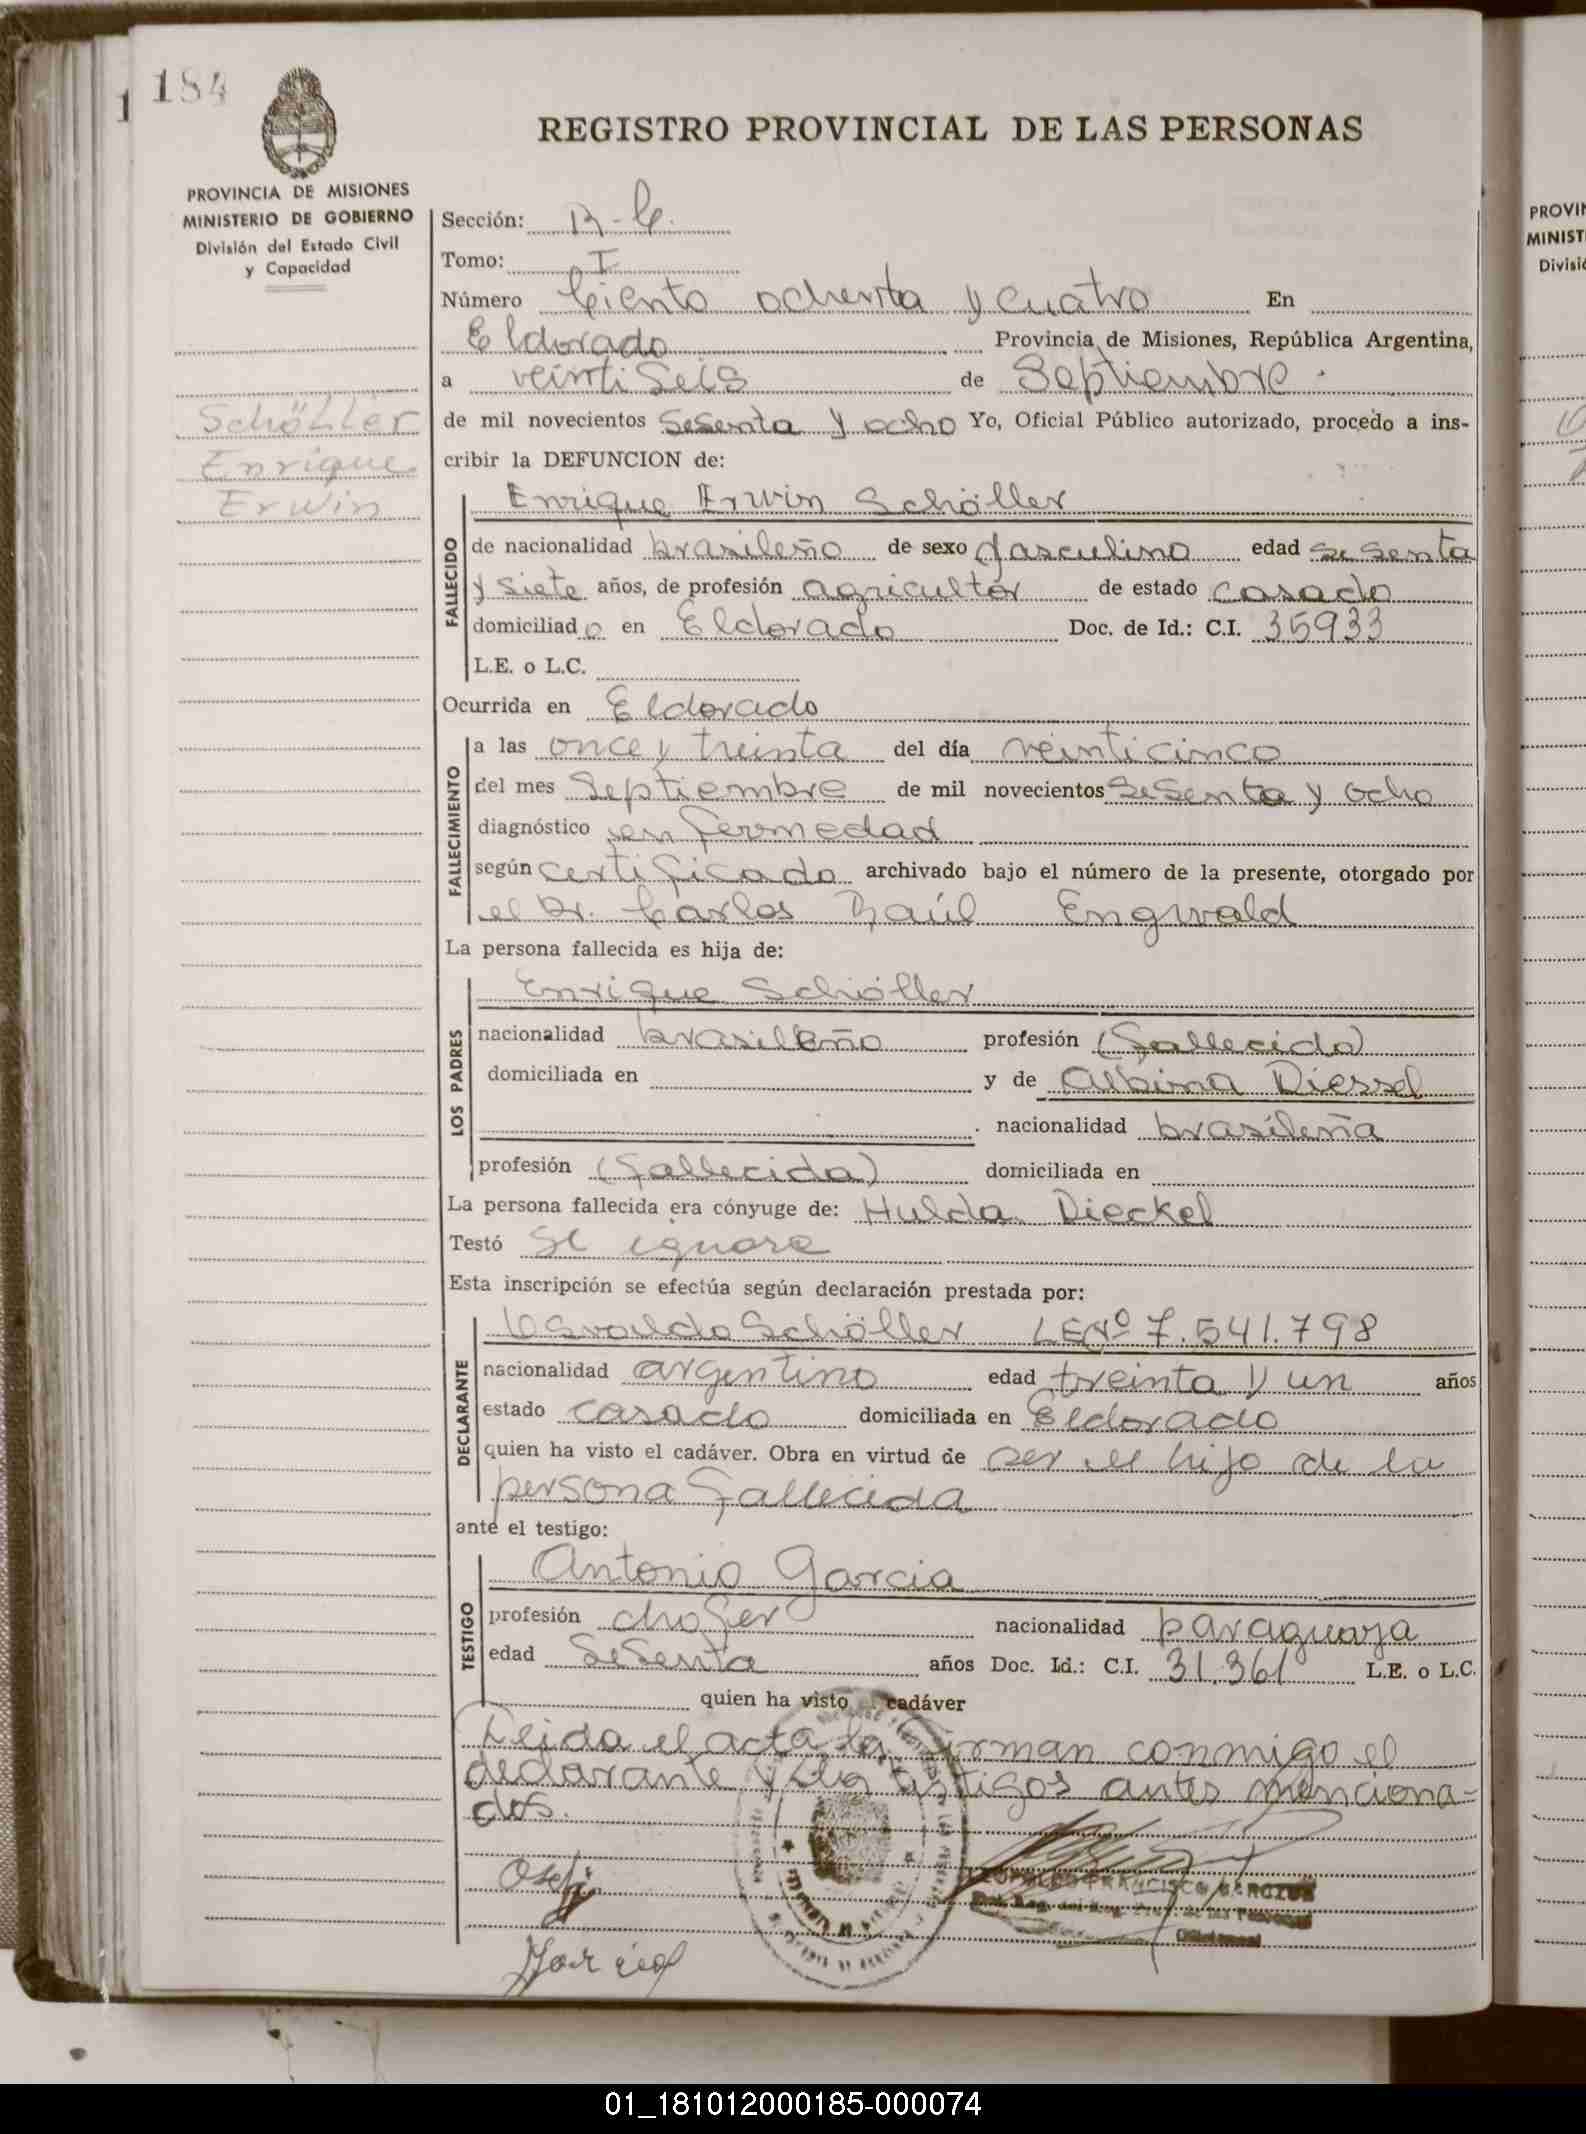 184
1
PROVINCIA DE MISIONES
MINISTERIO DE GOBIERNO
División del Estado Civil
y Capacidad
Schöller
Enrique
Erwin
REGISTRO PROVINCIAL DE LAS PERSONAS
Sección: R-C.
Tomo: I
Número Ciento ochenta y cuatro En
Eldorado Provincia de Misiones, República Argentina,
a veintiseis de Septiembre.
de mil novecientos Sesenta y ocho Yo, Oficial Público autorizado, procedo a ins-
cribir la DEFUNCION de:
FALLECIDO
Enrique Erwin Schöller
de nacionalidad brasileño de sexo Masculino edad sesenta
y siete años, de profesión agricultor de estado casado
domiciliado en Eldorado Doc. de Id.: C.I. 35933
L.E. o L.C.
Ocurrida en Eldorado
FALLECIMIENTO
a las once y treinta del día veinticinco
del mes Septiembre de mil novecientos Sesenta y ocho
diagnóstico enfermedad
según certificado archivado bajo el número de la presente, otorgado por
el Dr. Carlos Raúl Engwald
La persona fallecida es hija de:
LOS PADRES
Enrique Schöller
nacionalidad brasileño profesión (fallecido)
domiciliada en y de Albina Diessel
nacionalidad brasileña
profesión (fallecida) domiciliada en
La persona fallecida era cónyuge de: Hulda Dieckel
Testó Se ignora
Esta inscripción se efectúa según declaración prestada por:
DECLARANTE
Osvaldo Schöller LENº 7.541.798
nacionalidad argentino edad treinta y un años
estado casado domiciliada en Eldorado
quien ha visto el cadáver. Obra en virtud de ser el hijo de la
persona fallecida
ante el testigo:
TESTIGO
Antonio Garcia
profesión chofer nacionalidad paraguaya
edad Sesenta años Doc. Id.: C.I. 31.361 L.E. o L.C.
quien ha visto cadáver
Leida el acta la firman conmigo el
declarante y los testigos antes menciona-
dos.
FRANCISCO
PROVIN
MINIST
Divisió
01_181012000185-000074